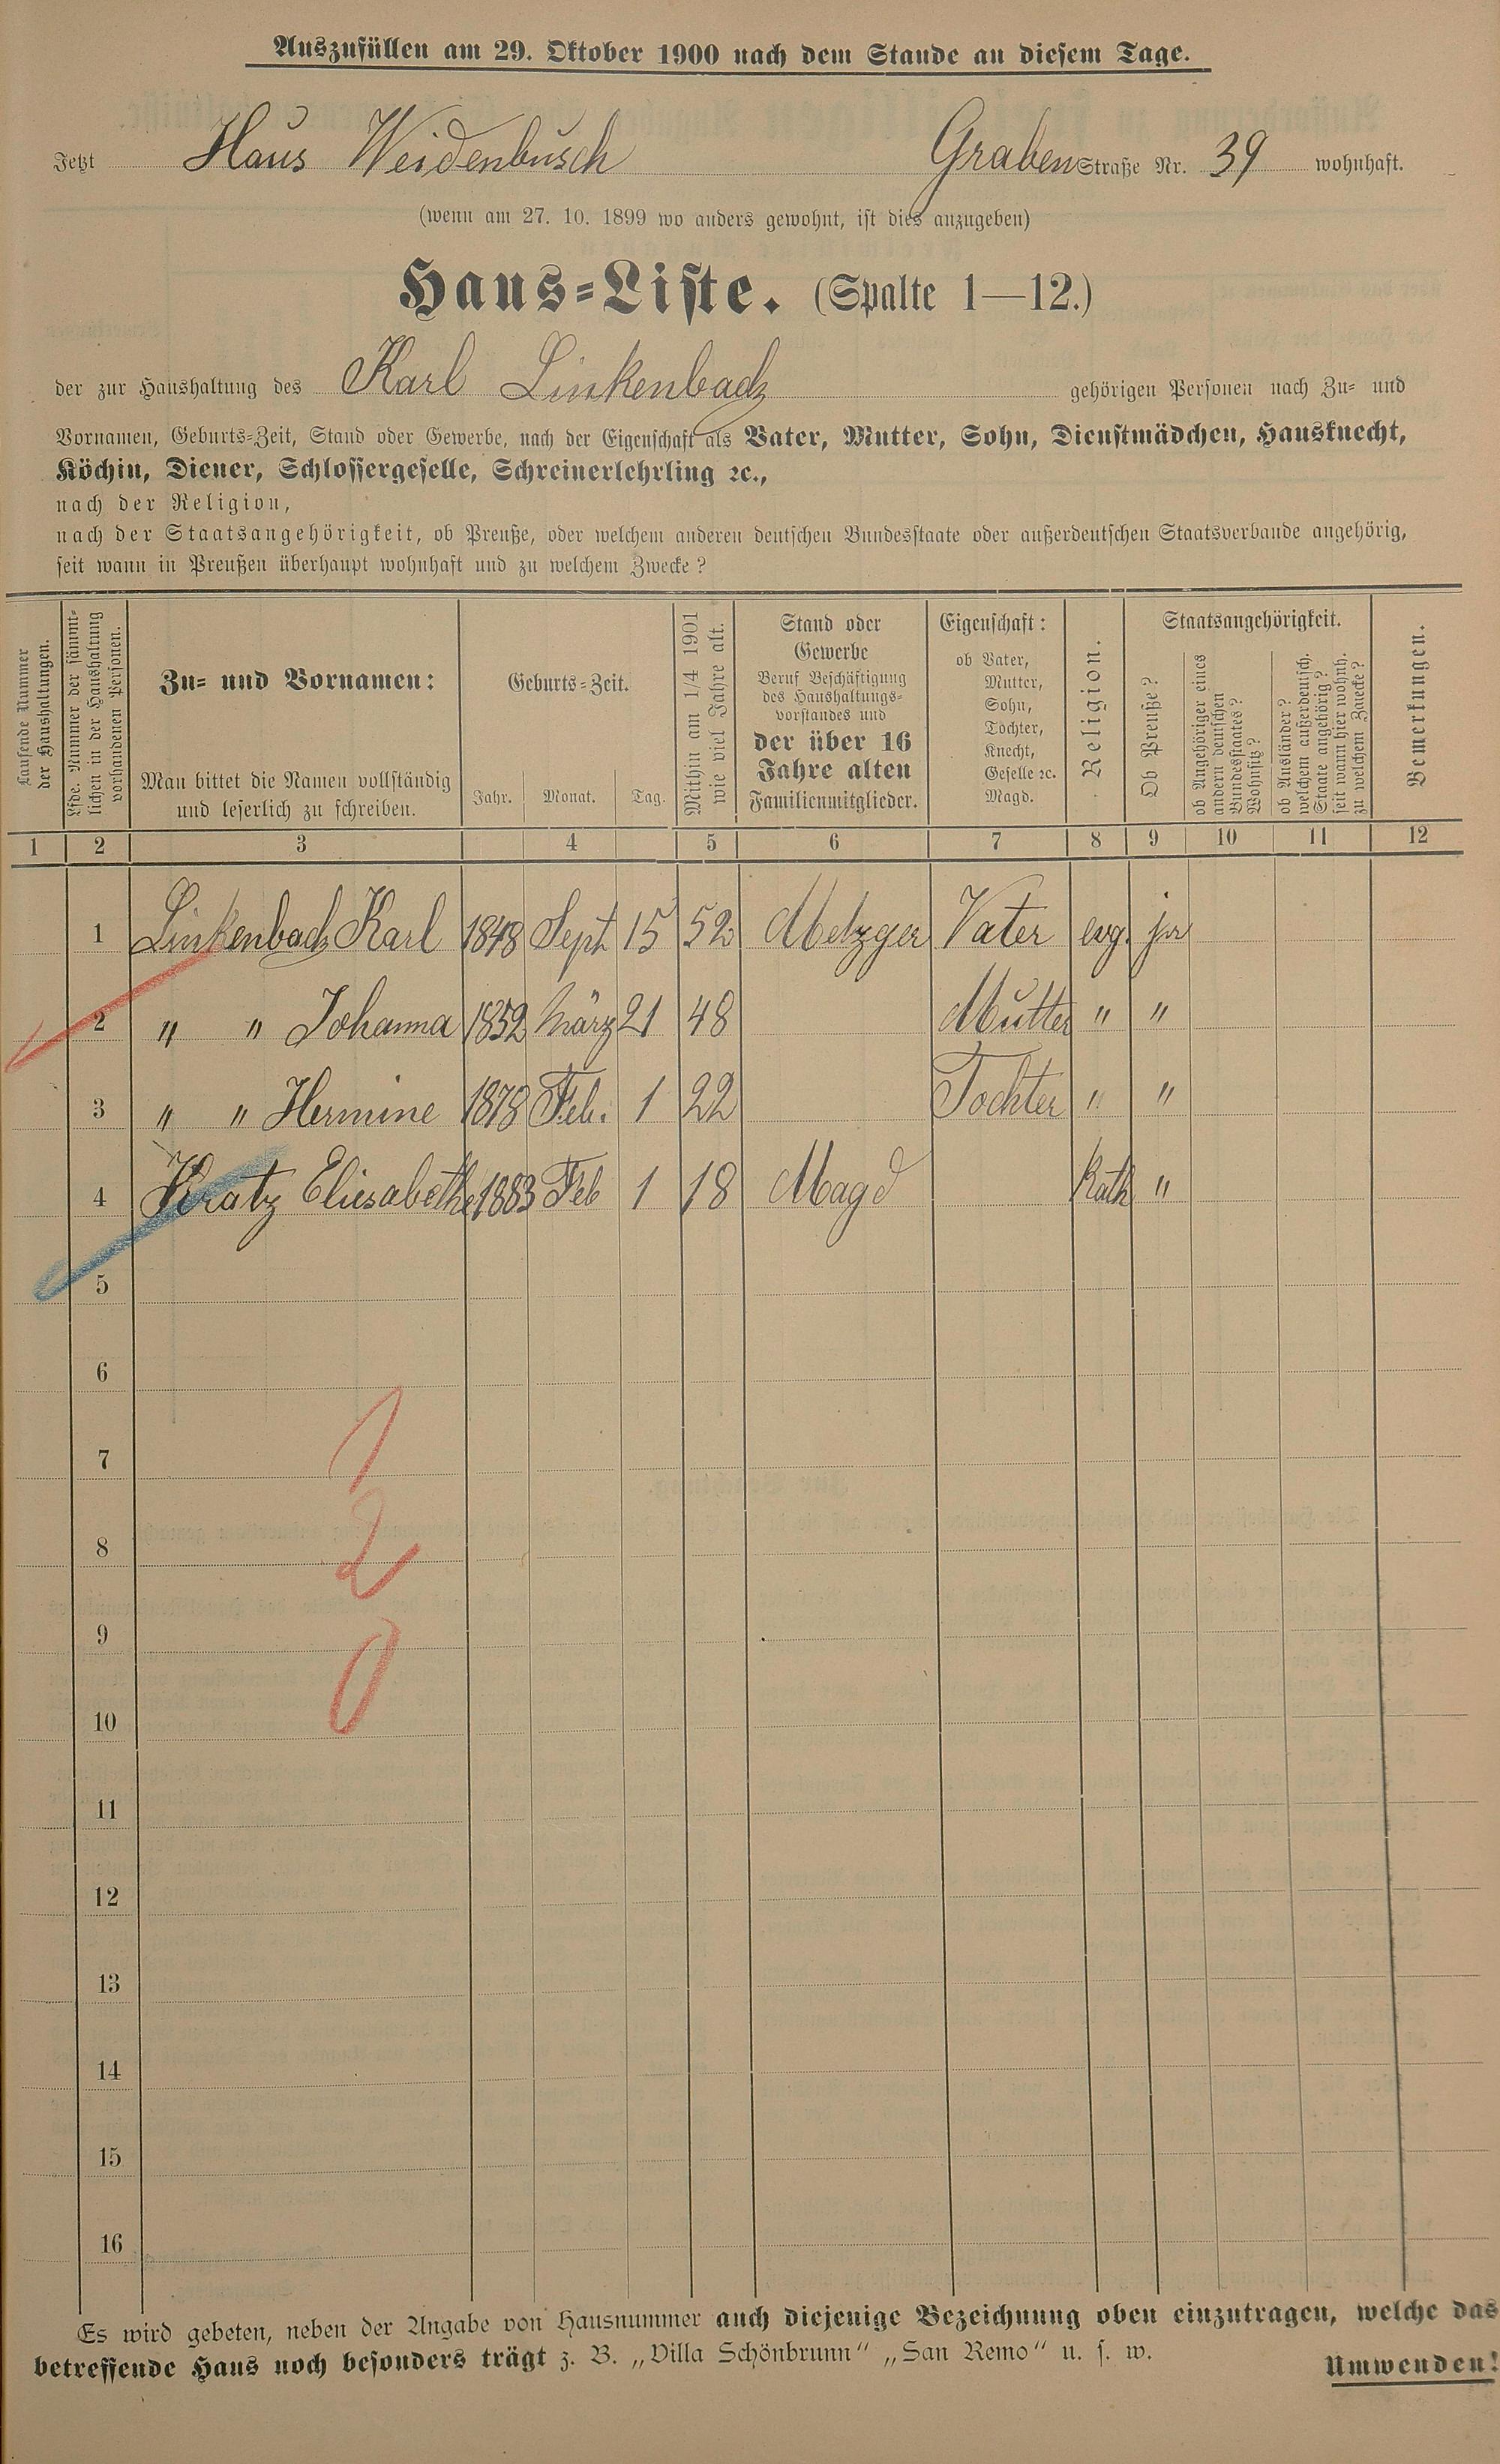 Auszufüllen am 29. Oktober 1900 nach dem Stande an diesem Tage.
Jetzt Haus Weidenbusch Graben Straße Nr. 39 wohnhaft.
(wenn am 27. 10. 1899 wo anders gewohnt, ist dies anzugeben)
Haus-Liste. (Spalte 1—12.)
der zur Haushaltung des Karl Linkenbach gehörigen Personen nach Zu- und
Vornamen, Geburts-Zeit, Stand oder Gewerbe, nach der Eigenschaft als Vater, Mutter, Sohn, Dienstmädchen, Hausknecht,
Köchin, Diener, Schlossergeselle, Schreinerlehrling ꝛc.,
nach der Religion,
nach der Staatsangehörigkeit, ob Preuße, oder welchem anderen deutschen Bundesstaate oder außerdeutschen Staatsverbande angehörig,
seit wann in Preußen überhaupt wohnhaft und zu welchem Zwecke?
Laufende Nummer
der Haushaltungen.
Lfde. Nummer der sämmt-
lichen in der Haushaltung
vorhandenen Personen.
Zu- und Vornamen:
Man bittet die Namen vollständig
und leserlich zu schreiben.
Geburts-Zeit.
Jahr. Monat. Tag.
Mithin am 1/4 1901
wie viel Jahre alt.
Stand oder
Gewerbe
Beruf Beschäftigung
des Haushaltungs-
vorstandes und
der über 16
Jahre alten
Familienmitglieder.
Eigenschaft:
ob Vater,
Mutter,
Sohn,
Tochter,
Knecht,
Geselle ꝛc.
Magd.
Religion.
Staatsangehörigkeit.
Ob Preuße?
ob Angehöriger eines
andern deutschen
Bundesstaates?
Wohnsitz?
ob Ausländer?
welchem außerdeutsch.
Staate angehörig?
seit wann hier wohnh.
zu welchem Zwecke?
Bemerkungen.
1 2 3 4 5 6 7 8 9 10 11 12
1 Linkenbach Karl 1848 Sept 15 52 Metzger Vater evg. ja
2 " " Johanna 1852 März 21 48 Mutter " "
3 " " Hermine 1878 Feb. 1 22 Tochter " "
4 Kratz Eliesabethe 1883 Feb 1 18 Magd Kath "
5
6
7
1
8
2
9
0
10
11
12
13
14
15
16
Es wird gebeten, neben der Angabe von Hausnummer auch diejenige Bezeichnung oben einzutragen, welche das
betreffende Haus noch besonders trägt z. B. „Villa Schönbrunn“ „San Remo“ u. s. w.
Umwenden!